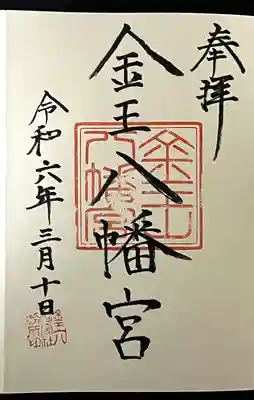 奉拝
金王八幡宮
令和六年三月十日
金王八幡宮